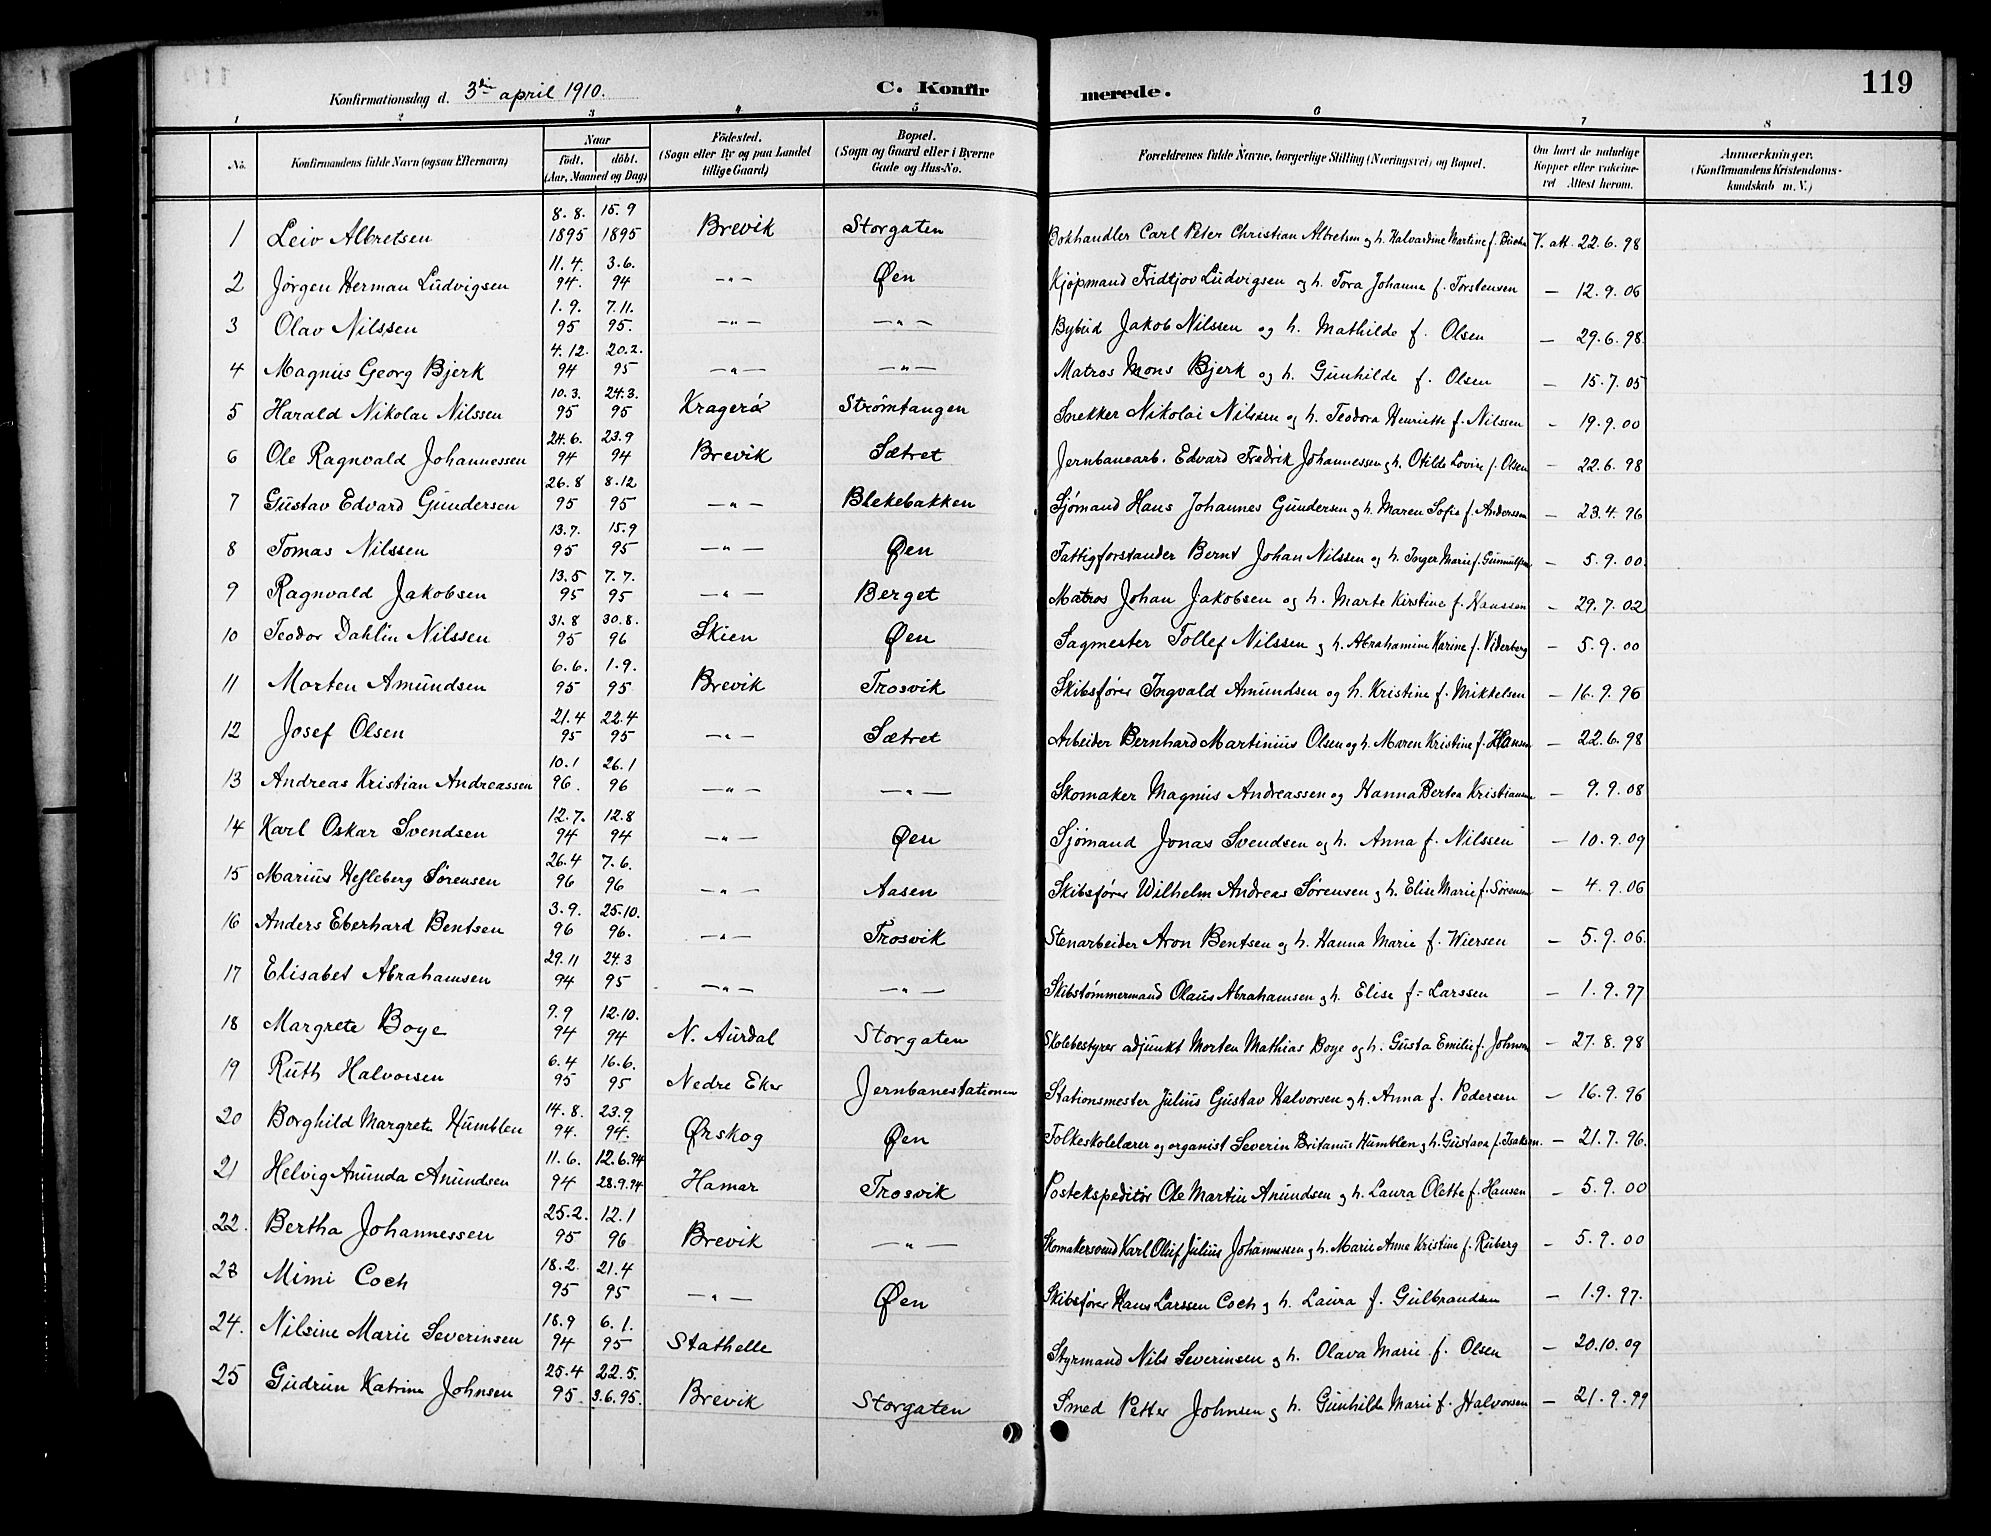 119
Konfirmationsdag d. 3die april 1910. C. Konfirmerede.
1 2 3 4 5 6 7 8
No. Konfirmandens fulde Navn (ogsaa Efternavn) Naar födt. döbt. (Aar, Maaned og Dag) Födested. (Sogn eller By og paa Landet tillige Gaard) Bopæl. (Sogn og Gaard eller i Byerne Gade og Hus-No. Forældrenes fulde Navne, borgerlige Stilling (Næringsvei) og Bopæl. Om havt de naturlige Kopper eller vakcineret Attest herom. Anmærkninger. (Konfirmandens Kristendomskundskab m. V.)
1 Leiv Albretsen 8.8. 1895 15.9 1895 Brevik Storgaten Bokhandler Carl Peter Christian Albretsen og h. Halvardine Martine f. V. att. 22.6.98
2 Jørgen Herman Ludvigsen 11.4. 94. 3.6. 94 —"— Øen Kjøpmand Fridtjov Ludvigsen og h. Tora Johanne f. Torstensen — 12.9.06
3 Olav Nilssen 1.9. 95 7.11. 95. —"— —"— Bybud Jakob Nilssen og h. Mathilde f. Olsen — 29.6.98.
4 Magnus Georg Bjerk 4.12. 94 20.2. 95 —"— —"— Matros Mons Bjerk og h. Gunhilde f. Olsen — 15.7.05
5 Harald Nikolai Nilssen 10.3. 95 24.3. 95 Kragerø Strømtangen Snekker Nikolai Nilssen og h. Teodora Henriette f. Nilssen - 19.9.00
6 Ole Ragnvald Johannessen 24.6. 94 23.9 94 Brevik Sætret Jernbanearb. Edvard Fredrik Johannessen og h. Otilde Lovine f. Olsen — 22.6.98
7 Gustav Edvard Gundersen 26.8 95 8.12 95 —"— Blekebakken Sjømand Hans Johannes Gundersen og h. Maren Sofie f. Anderssen — 23.4.96
8 Tomas Nilssen 13.7. 95 15.9 95 —"— Øen Fattigforstander Bernt Johan Nilssen og h. Inger Marie f. — 5.9.00.
9 Ragnvald Jakobsen 13.5 95 7.7. 95 —"— Berget Matros Johan Jakobsen og h. Marte Kirstine f. Hanssen — 29.7.02
10 Teodor Dahlin Nilssen 31.8 95 30.8. 96 Skien Øen Sagmester Tollef Nilssen og h. Abrahamine Karine f. Viderberg — 5.9.00
11 Morten Amundsen 6.6. 95 1.9. 95 Brevik Trosvik Skibsfører Ingvald Amundsen og h. Kristine f. Mikkelsen — 16.9.96
12 Josef Olsen 21.4 95 22.4 95 —"— Sætret Arbeider Bernhard Martinius Olsen og h. Maren Kristine f. Hansen — 22.6.98
13 Andreas Kristian Andreassen 10.1 96. 26.1 96 —"— —"— Skomaker Magnus Andreassen og Hanna Bertea Kristiansen — 9.9.08
14 Karl Oskar Svendsen 12.7. 94 12.8 94 —"— Øen Sjømand Jonas Svendsen og h. Anna f. Nilssen — 10.9.09
15 Marius Hefleberg Sørensen 26.4 96 7.6. 96 —"— Aasen Skibsfører Wilhelm Andreas Sørensen og h. Elise Marie f. Sørensen — 4.9.06
16 Anders Eberhard Bentsen 3.9. 96 25.10. 96. —"— Trosvik Stenarbeider Aron Bentsen og h. Hanna Marie f. Wiersen — 5.9.06.
17 Elisabet Abrahamsen 29.11 94 24.3 95 —"— —"— Skibstømmermand Olaus Abrahamsen og h. Elise f. Larssen — 1.9.97
18 Margrete Boye 9.9 94 12.10. 94 N. Aurdal Storgaten Skolebestyrer adjunkt Morten Mathias Boye og h. Gusta Emilie f. Johnsen — 27.8.98
19 Ruth Halvorsen 6.4 95 16.6. 95 Nedre Eker Jernbanestationen Stationsmester Julius Gustav Halvorsen og h. Anna f. Pedersen — 16.9.96
20 Borghild Margrete Humblen 14.8. 94. 23.9 94. Ørskog Øen Folkeskolelærer og organist Severin Britanus Humblen og h. Gustava f. Isaksen. — 21.7.96.
21 Helvig Anunda Anundsen 11.6. 94 12.6.94 28.9.94 Hamar Trosvik Postekspeditør Ole Martin Anundsen og h. Laura Olette f. Hansen — 5.9.00
22. Bertha Johannessen 25.2. 95 12.1 96 Brevik —"— Skomakersvend Karl Oluf Julius Johannessen og h. Marie Anne Kristine f. Ruberg — 5.9.00
23 Mimi Coch 18.2. 95 21.4 95 —"— Øen Skibsfører Hans Larssen Coch og h. Laura f. Gulbrandsen — 1.9.97.
24. Nilsine Marie Severinsen 18.9 94 6.1. 95 Stathelle Styrmand Nils Severinsen og h. Olava Marie f. Olsen — 20.10.09
25 Gudrun Katrine Johnsen 25.4 95 22.5. 3.6.95. Brevik Storgaten Smed Petter Johnsen og h. Gunhilde Marie f. Halvorsen — 21.9.99